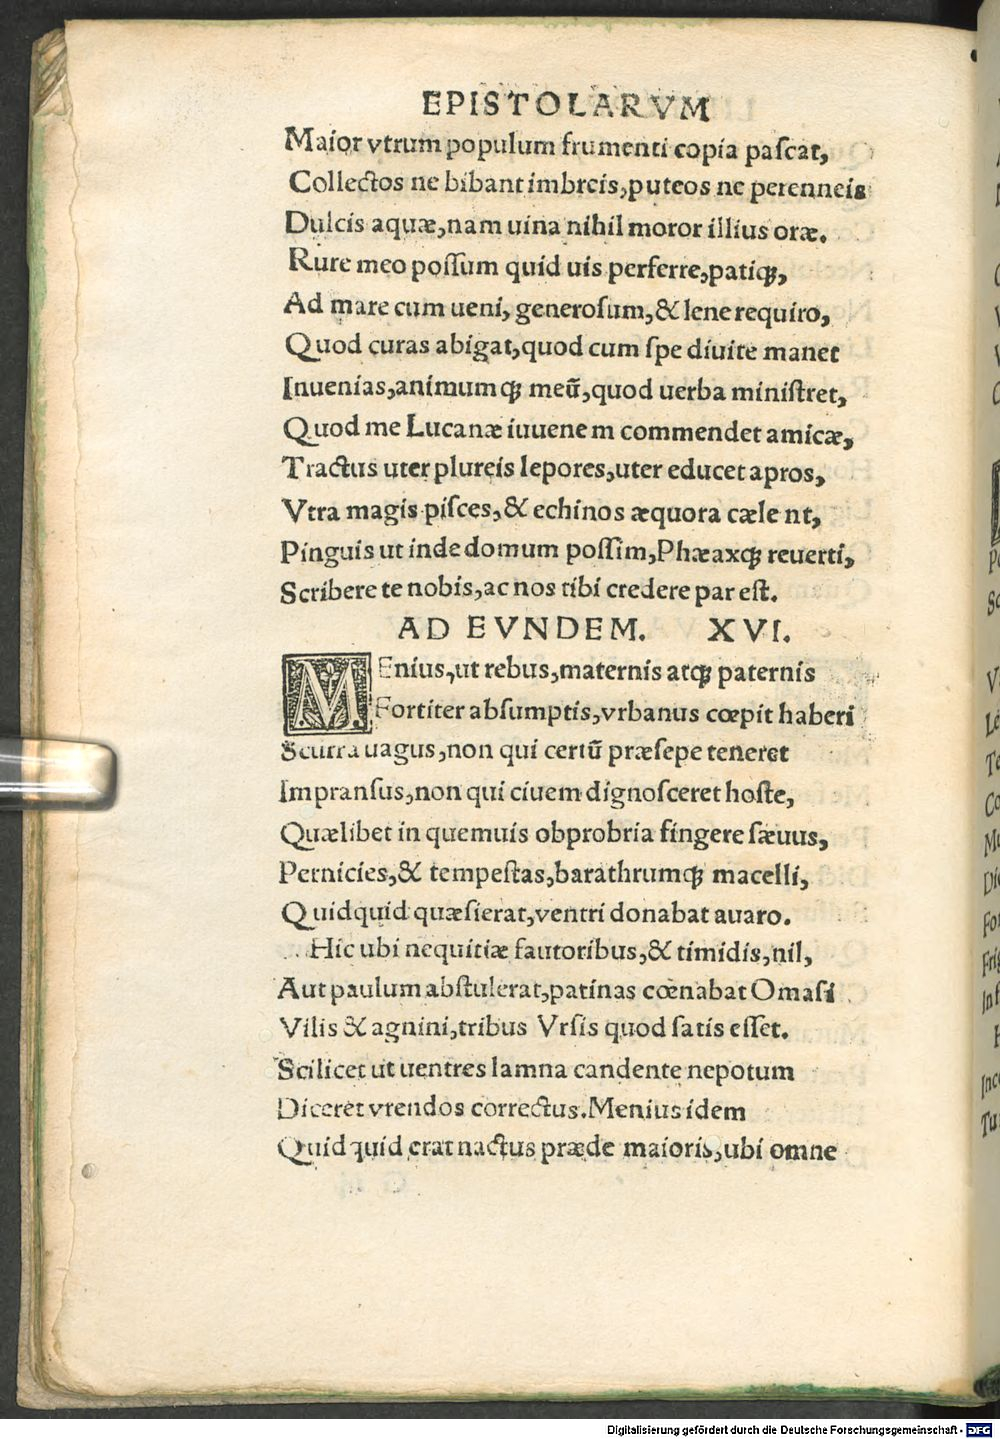 EPISTOLARVM
Maior vtrum populum frumenti copia paſcat,
Collectos ne bibant imbreis, puteos ne perenneis
Dulcis aquæ, nam uina nihil moror illius oræ.
Rure meo poſſum quid uis perferre, patiq;,
Ad mare cum ueni, generoſum, & lene requiro,
Quod curas abigat, quod cum ſpe diuite manet
Inuenias, animumq; meũ, quod uerba miniſtret,
Quod me Lucanæ iuuene m commendet amicæ,
Tractus uter plureis lepores, uter educet apros,
Vtra magis piſces, & echinos æquora cæle nt,
Pinguis ut inde domum poſſim, Phæaxq; reuerti,
Scribere te nobis, ac nos tibi credere par eſt.
AD EVNDEM. XVI.
MEnius, ut rebus, maternis atq; paternis
Fortiter abſumptis, vrbanus cœpit haberi
Scurra uagus, non qui certũ præſepe teneret
Impranſus, non qui ciuem dignoſceret hoſte,
Quælibet in quemuis obprobria fingere ſæuus,
Pernicies, & tempeſtas, barathrumq; macelli,
Quidquid quæſierat, ventri donabat auaro.
Hic ubi nequitiæ fautoribus, & timidis, nil,
Aut paulum abſtulerat, patinas cœnabat Omaſi
Vilis & agnini, tribus Vrſis quod ſatis eſſet.
Scilicet ut uentres lamna candente nepotum
Diceret vrendos correctus. Menius idem
Quid quid erat nactus præde maioris, ubi omne
Digitalisierung gefördert durch die Deutsche Forschungsgemeinschaft - DFG